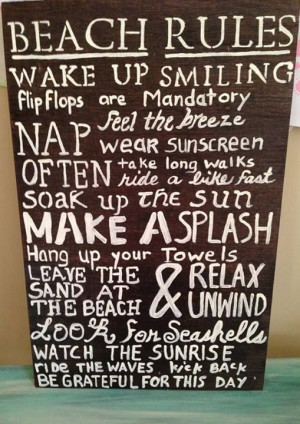 BEACH RULES
WAKE UP SMILING
flipflops are Mandatory
feel the breeze
NAP wear sunscreen
OFTEN take long walks
ride a bike fast
soak up the sun
MAKE A SPLASH
Hang up your Towels
LEAVE THE
SAND AT
THE BEACH
& RELAX
UNWIND
Look for Seashells
WATCH THE SUNRISE
RIDE THE WAVES kick BACK
BE GRATEFUL FOR THIS DAY